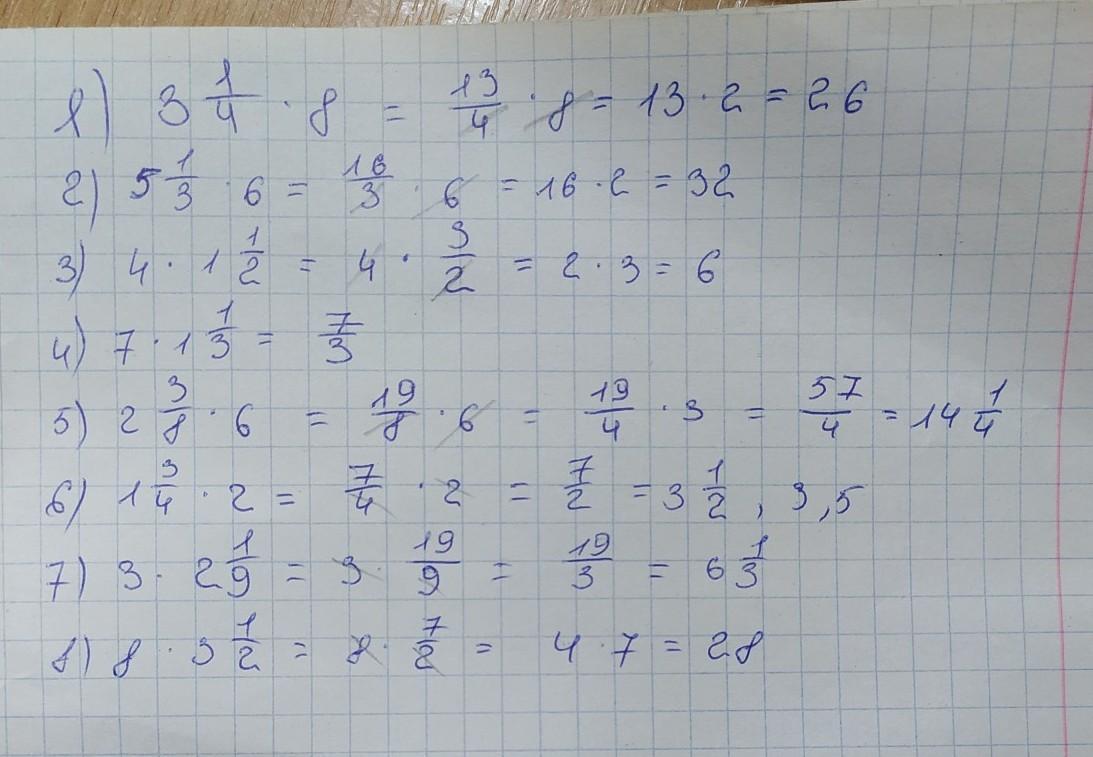 1) 3 1/4 · 8 = 13/4 · 8 = 13 · 2 = 26
2) 5 1/3 · 6 = 16/3 · 6 = 16 · 2 = 32
3) 4 · 1 1/2 = 4 · 3/2 = 2 · 3 = 6
4) 7 · 1 1/3 = 7/3
5) 2 3/8 · 6 = 19/8 · 6 = 19/4 · 3 = 57/4 = 14 1/4
6) 1 3/4 · 2 = 7/4 · 2 = 7/2 = 3 1/2, 3,5
7) 3 · 2 1/9 = 3 · 19/9 = 19/3 = 6 1/3
8) 8 · 3 1/2 = 8 · 7/2 = 4 · 7 = 28